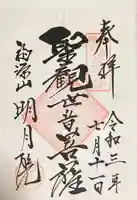 奉拝
令和三年
七月十一日
聖観世音菩薩
福源山
明月院